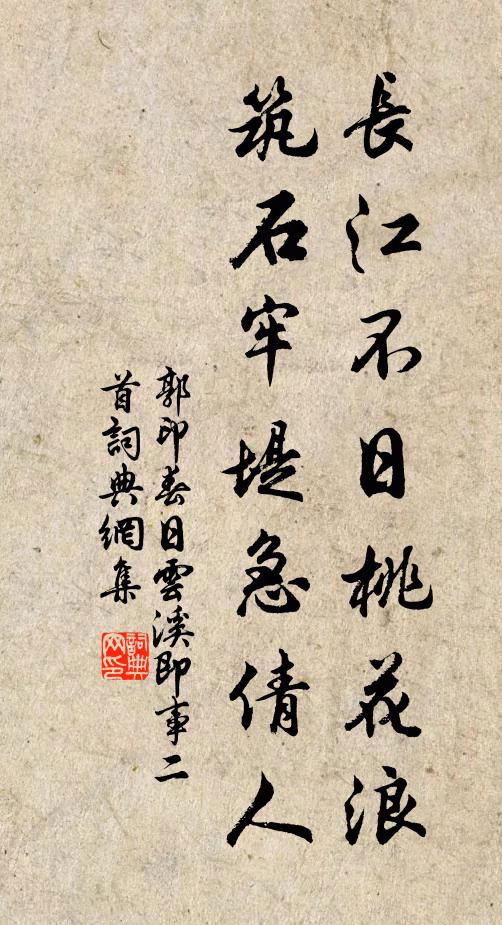 長江不日桃花浪
筑石牢堤急倩人
郭印春日雲溪即事二
首詞典網集
詞典网印